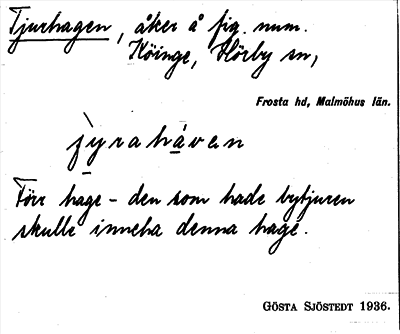 Tjurhagen, åker å fig. num.
Köinge, Hörby sn,
Frosta hd, Malmöhus län.
jyrahávan
Förr hage – den som hade bytjuren
skulle inneha denna hage.
GÖSTA SJÖSTEDT 1936.